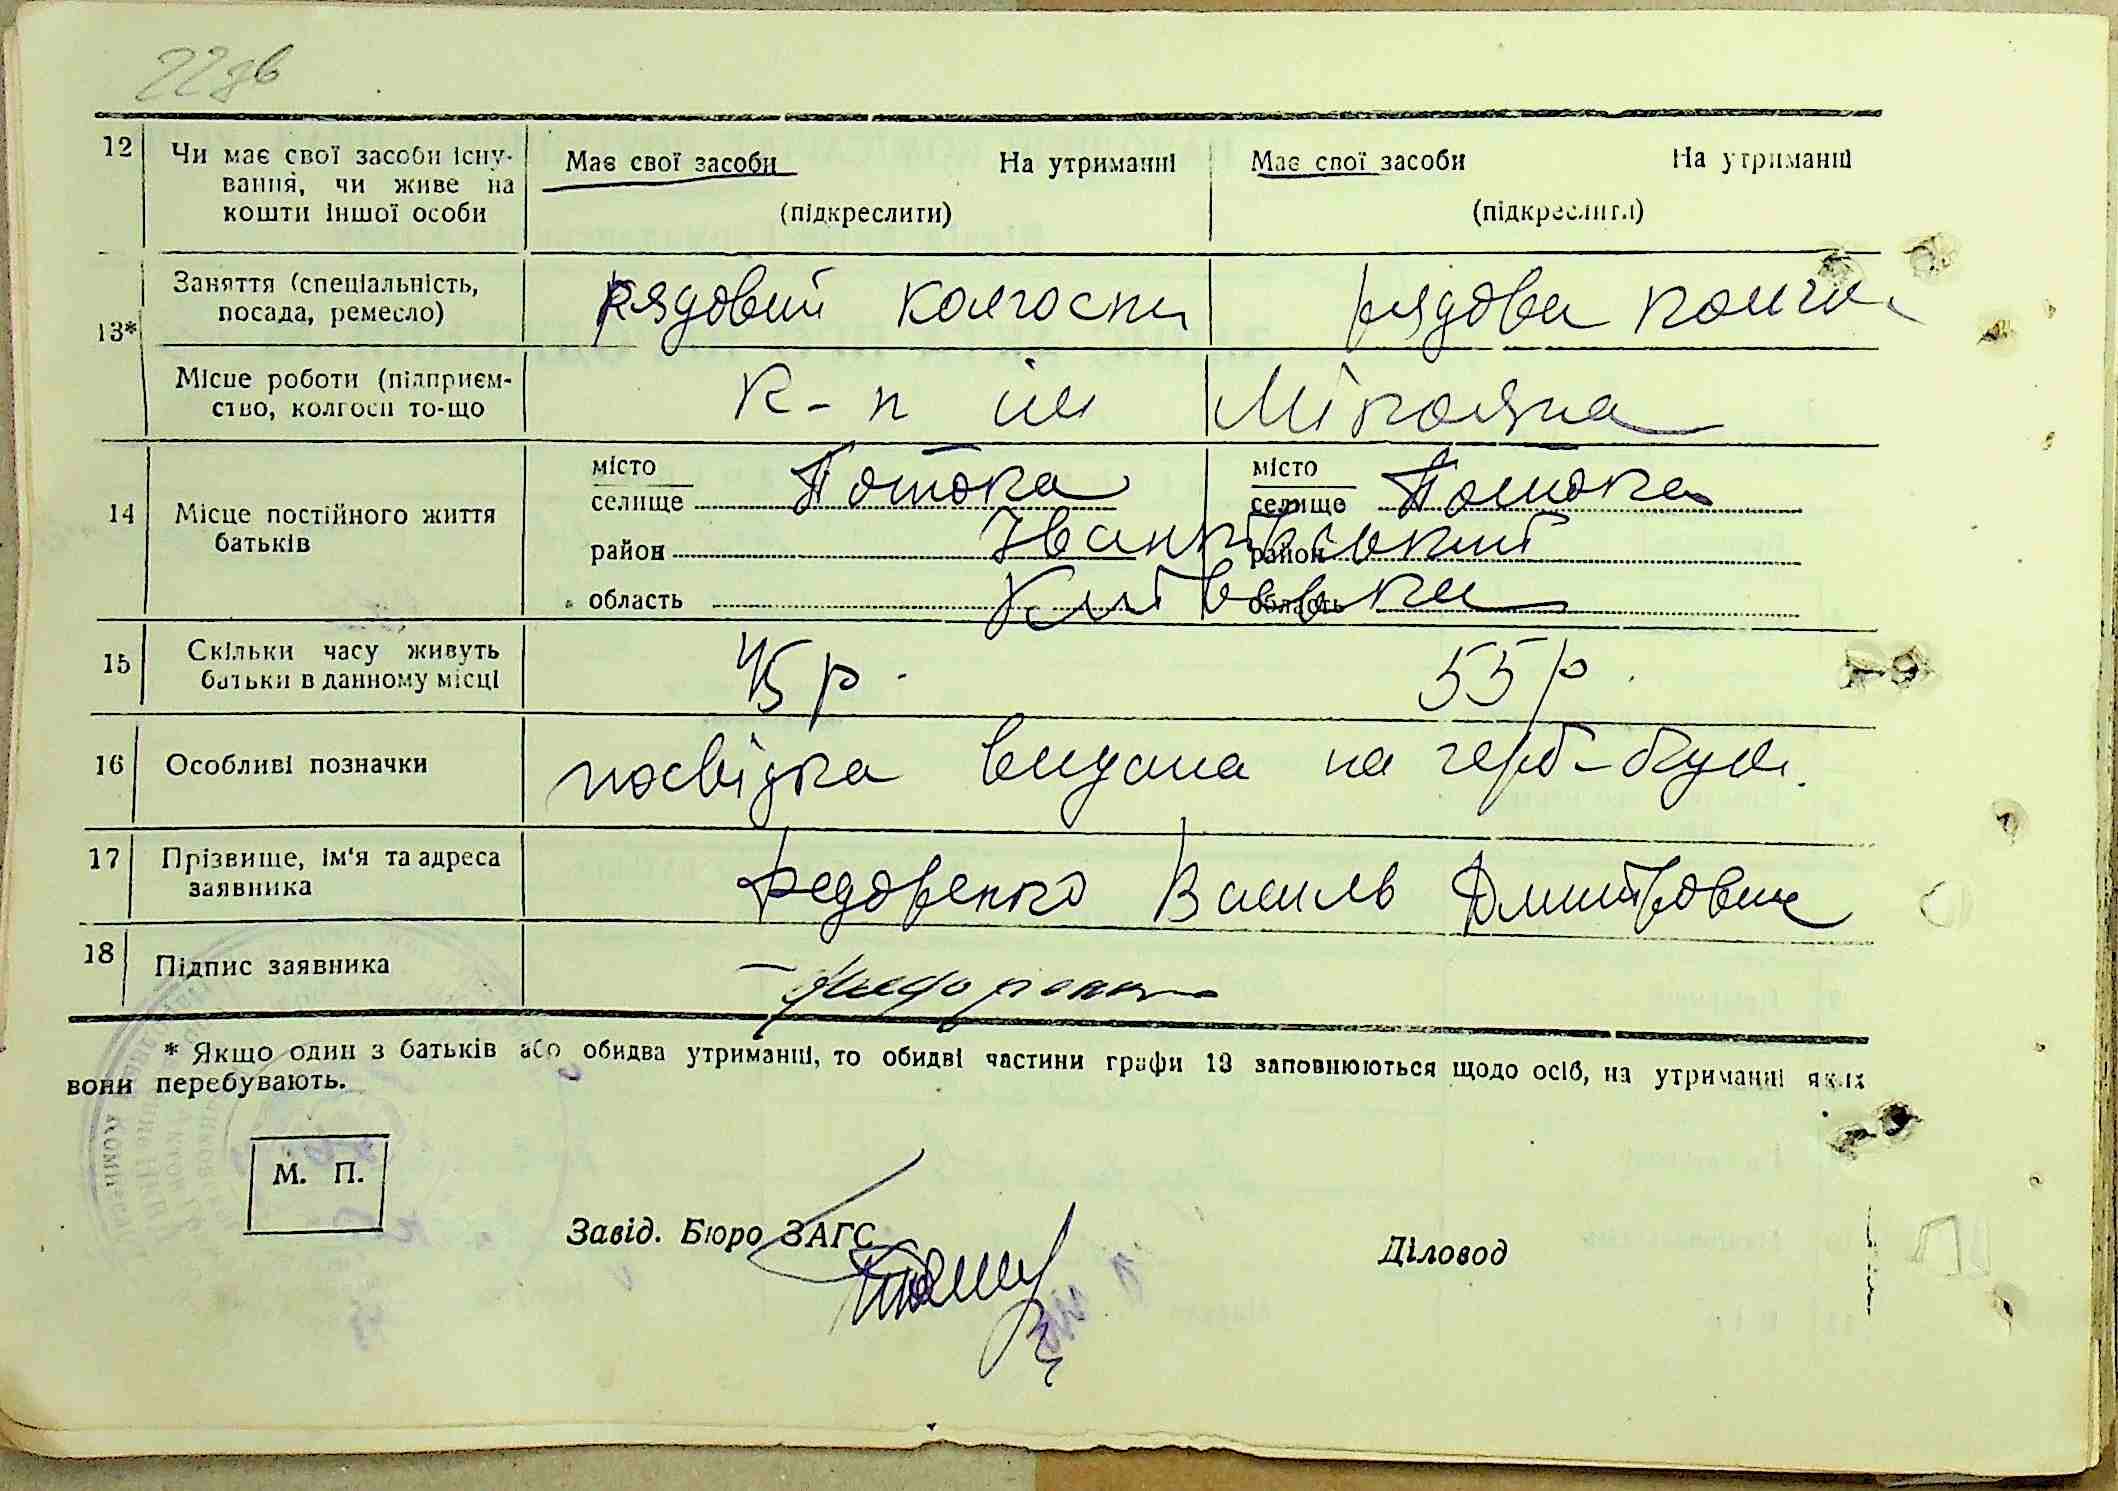 22 зв
12 Чи має свої засоби існу- Має свої засоби На утриманні Має свої засоби На утриманні
вання, чи живе на
кошти іншої особи (підкреслити) (підкреслити)
13* Заняття (спеціальність, рядовий колгоспн рядова колго
посада, ремесло)
Місце роботи (підприєм- к-п ім Мікояна
ство, колгосп то-що
14 Місце постійного життя батьків
місто Потока місто Потока
селище селище
район Іванківський район
область Київська область
15 Скільки часу живуть 45 р. 55 р.
батьки в данному місці
16 Особливі позначки посвідка видана на герб-бум.
17 Прізвище, ім'я та адреса Федоренко Василь Дмитрович
заявника
18 Підпис заявника Федоренко
* Якщо один з батьків або обидва утриманці, то обидві частини графи 13 заповнюються щодо осіб, на утриманні яких
вони перебувають.
М. П.
Завід. Бюро ЗАГС Діловод